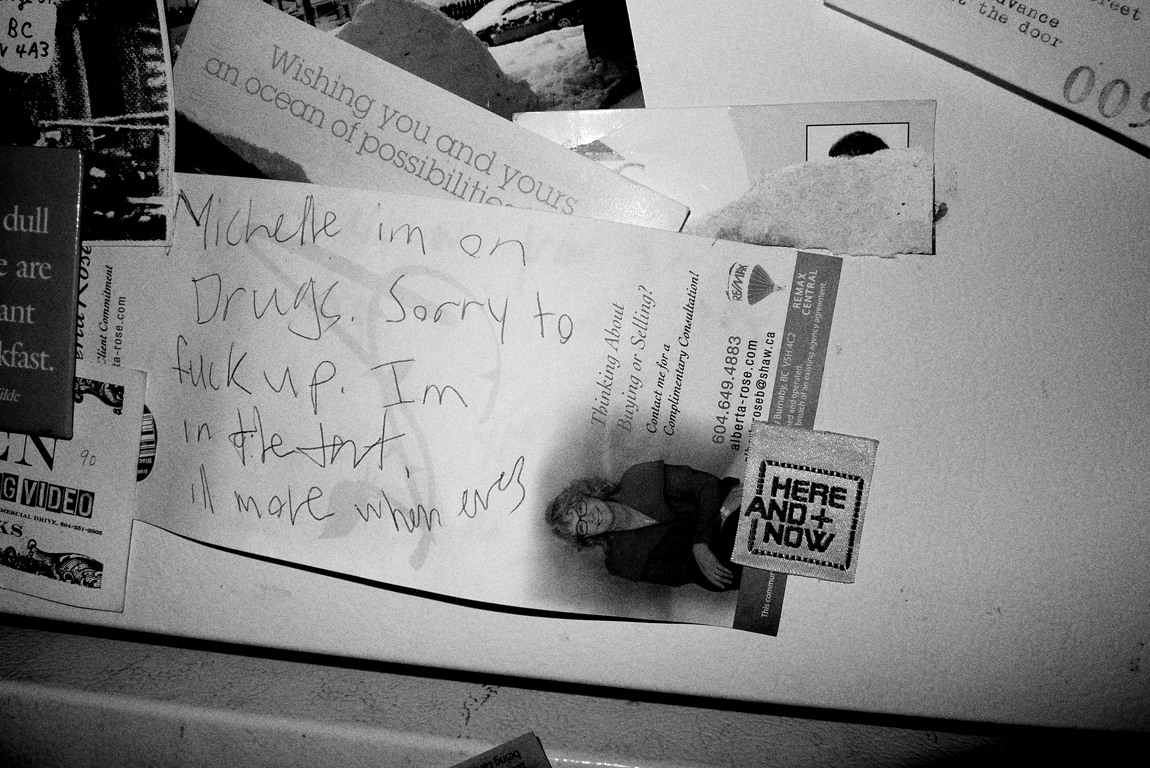 BC
4A3
Wishing you and yours
an ocean of possibilities
advance
at the door
009
dull
are
ant
kfast.
ilde
Client Commitment
ta-rose.com
Michelle im on
Drugs. Sorry to
fuck up. Im
in the tent
ill move when ever
Thinking About
Buying or Selling?
Contact me for a
Complimentary Consultation!
604.649.4883
alberta-rose.com
roseb@shaw.ca
RE/MAX
REMAX
CENTRAL
Burnaby, BC V5H 4C2
breach of an existing agency agreement.
This commun
HERE
AND+
NOW
EN
90
G VIDEO
MERCIAL DRIVE,
KS